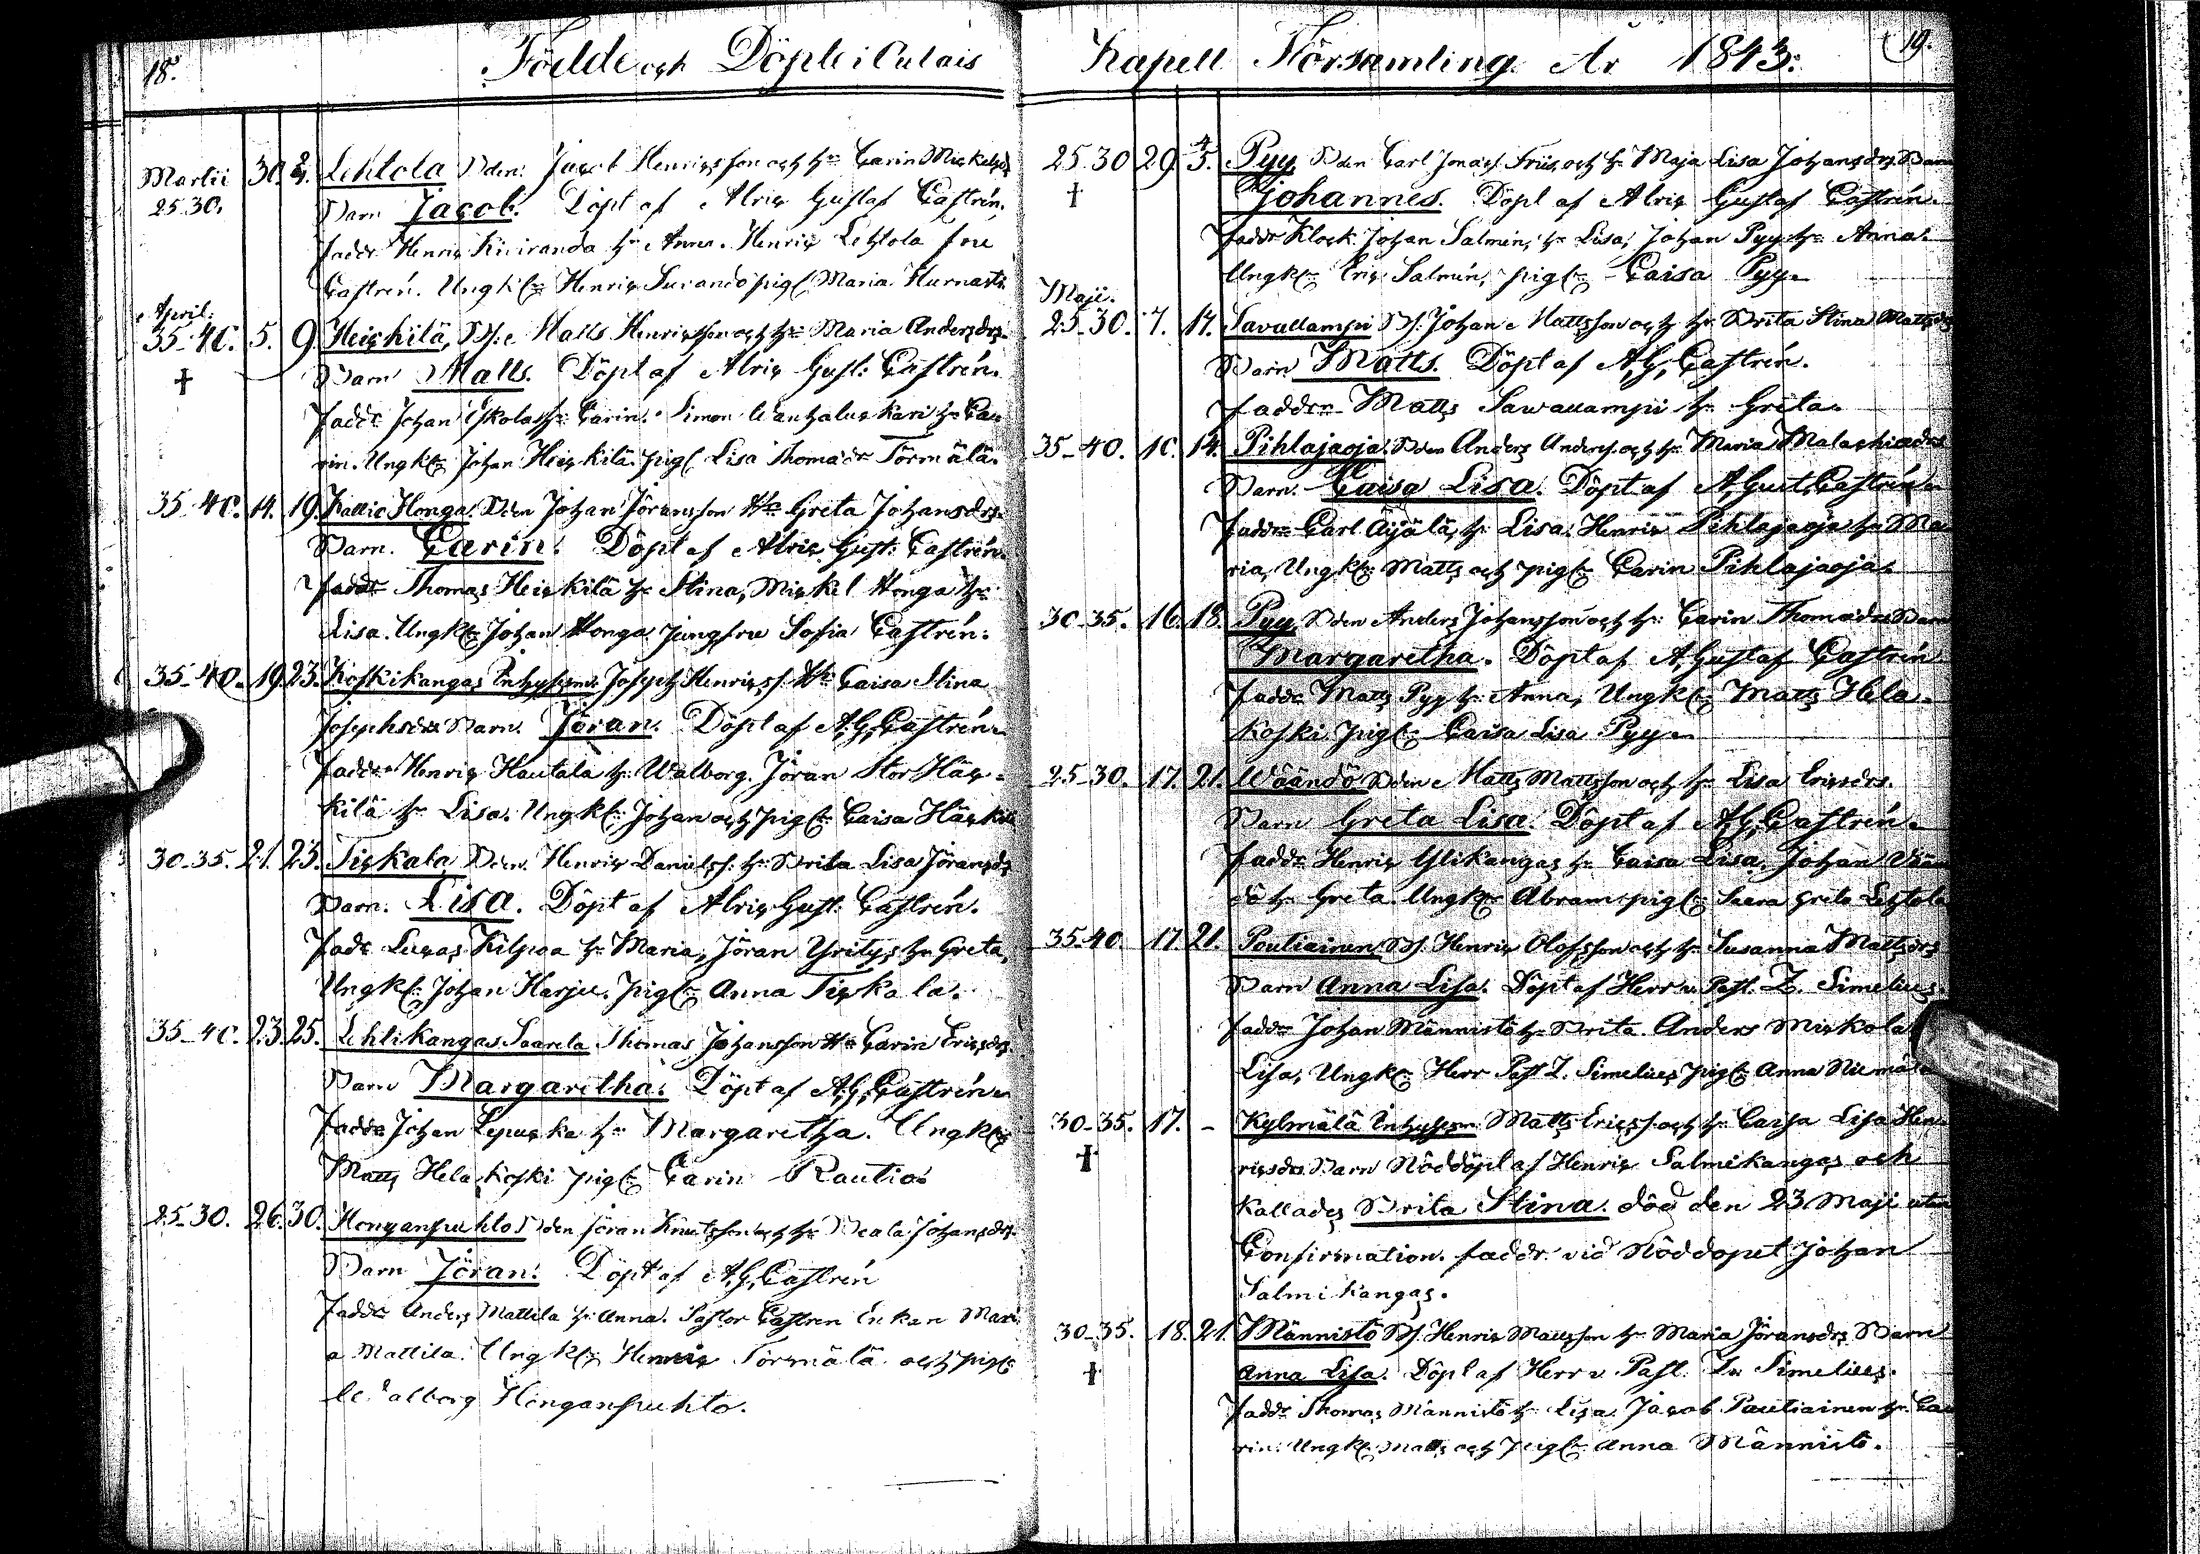 18.
Födde och Döpte i Pulais
Martii 30. Lehtola Bden. Jacob Henricsson och h. Carin Mickelsdr
25.30. Barn Jacob. Döpt af Alric Gustaf Castrén.
Faddr Henric Kiviranda h. Anna. Henric Lehtola fru
Castrén. Ungk. Henric Sucando pig. Maria Hurnasti
April:
35-40. 5. 9. Heickilä, Bf. Matts Henricsson och h. Maria Andersdr.
† Barn Matts. Döpt af Alric Gust: Castrén.
Faddr Johan Yskola h. Carin. Simon h. Ca-
rin. Ungk. Johan Heickilä. pig. Lisa Thomadr Törmälä.
35-40. 14. 19. Kallio Honga. Bden Johan Jöransson H. Greta Johansdr.
Barn. Carin. Döpt af Alric Gust: Castrén.
Faddr Thomas Heickilä h. Stina, Mickel Honga h.
Lisa. Ungk. Johan Honga. jungfru Sofia Castrén.
35-40. 19. 23. Koskikangas Inhyses. Joseph Henricss. H. Caisa Stina
Josephsdr Barn. Jöran. Döpt af A.G. Castrén.
Faddr Henric Hautala h. Walborg. Jöran Stor Häc-
kilä h. Lisa. Ungk. Johan och pig. Caisa Häckilä
30-35. 21. 23. Tickala Bden. Henric Danielss. h. Brita Lisa Jöransdr
Barn. Lisa. Döpt af Alric Gust: Castrén.
Fadr Lucas Kilpoa h. Maria, Jöran Yritys h. Greta,
Ungk. Johan Harju. pig. Anna Tickala.
35-40. 23. 25. Lehtikangas Saarela Thomas Johansson H. Carin Ericsdr.
Barn Margaretha. Döpt af A.G. Castrén.
Faddr Johan h. Margaretha. Ungk.
Matts Helakoski pig. Carin Rautio.
25-30. 26. 30. Honganpuhto Bden Jöran Knutsson och h. Beata Johansdr.
Barn Jöran. Döpt af A.G. Castrén
Faddr Anders Mattila h. Anna. Pastor Castren Enkan Mari
a Mattila. Ungk. Henric Törmälä och pig.
Walborg Honganpuhto.
Kapell Församling. År 1843. 19.
25-30 29. 5. Pyy, Bden Carl Jonass. Friis och h. Maja Lisa Johansdr. Barn
† Johannes. Döpt af Alric Gustaf Castrén.
Faddr Klock. Johan Salmén, h. Lisa, Johan Pyy h. Anna.
Ungk. Eric Salmén, pig. Caisa Pyy.
Maji.
25-30. 7. 17. Savullampi Bf. Johan Mattsson och h. Brita Stina Mattsdr
Barn Matts. Döpt af A.G. Castrén.
Faddr Matts h. Greta.
35-40. 10. 14. Pihlajaoja. Bden Anders Anderss. och h. Maria Malachiadr.
Barn. Caisa Lisa. Döpt af A. Gust. Castrén.
Faddr Carl Äijälä, h. Lisa. Henric Pihlajaoja h. Ma
ria, Ungk. Matts och pig. Carin Pihlajaoja.
30-35. 16. 18. Pyy, Bden Anders Johansson och h. Carin Thomadr. Barn
Margaretha. Döpt af A. Gustaf Castrén
Faddr Matts Pyy h. Anna, Ungk. Matts Hela-
koski, pig. Caisa Lisa Pyy.
25-30. 17. 21. Wäändö Bden Matts Mattsson och h. Lisa Ericsdr.
Barn Greta Lisa. Döpt af A.G. Castrén.
Faddr Henric Ylikangas h. Caisa Lisa. Johan Wään
dö h. Greta. Ungk. Abram pig. Saara Greta Lehtola
35-40. 17. 21. Poutiainen Bf. Henric Olofsson och h. Susanna Mattsdr
Barn Anna Lisa. Döpt af Herr v. Past. Z. Simelius.
Faddr Johan Männistö h. Brita. Anders Mickola
Lisa, Ungk. Herr Past Z. Simelius, pig. Anna Niemälä
30-35. 17. - Kylmälä Inhyses. Matts Ericss. och h. Caisa Lisa Hen-
† ricsdr Barn Nöddöpt af Henric Salmikangas och
kallades Brita Stina. död den 23 Maji utan
Confirmation. faddr. vid Nöddopet Johan
Salmikangas.
30-35. 18. 21. Männistö Bf. Henric Mattsson h. Maria Jöransdr Barn
† Anna Lisa. Döpt af Herr v. Past. Z. Simelius.
Faddr Thomas Männistö h. Lisa. Jacob Pautiainen h. Ca
rin. Ungk. Matts och pig. Anna Männistö.